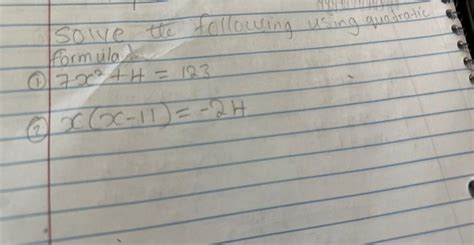 Solve the following using quadratic
formula.
① 7x² + 4 = 123
② x(x-11) = -24